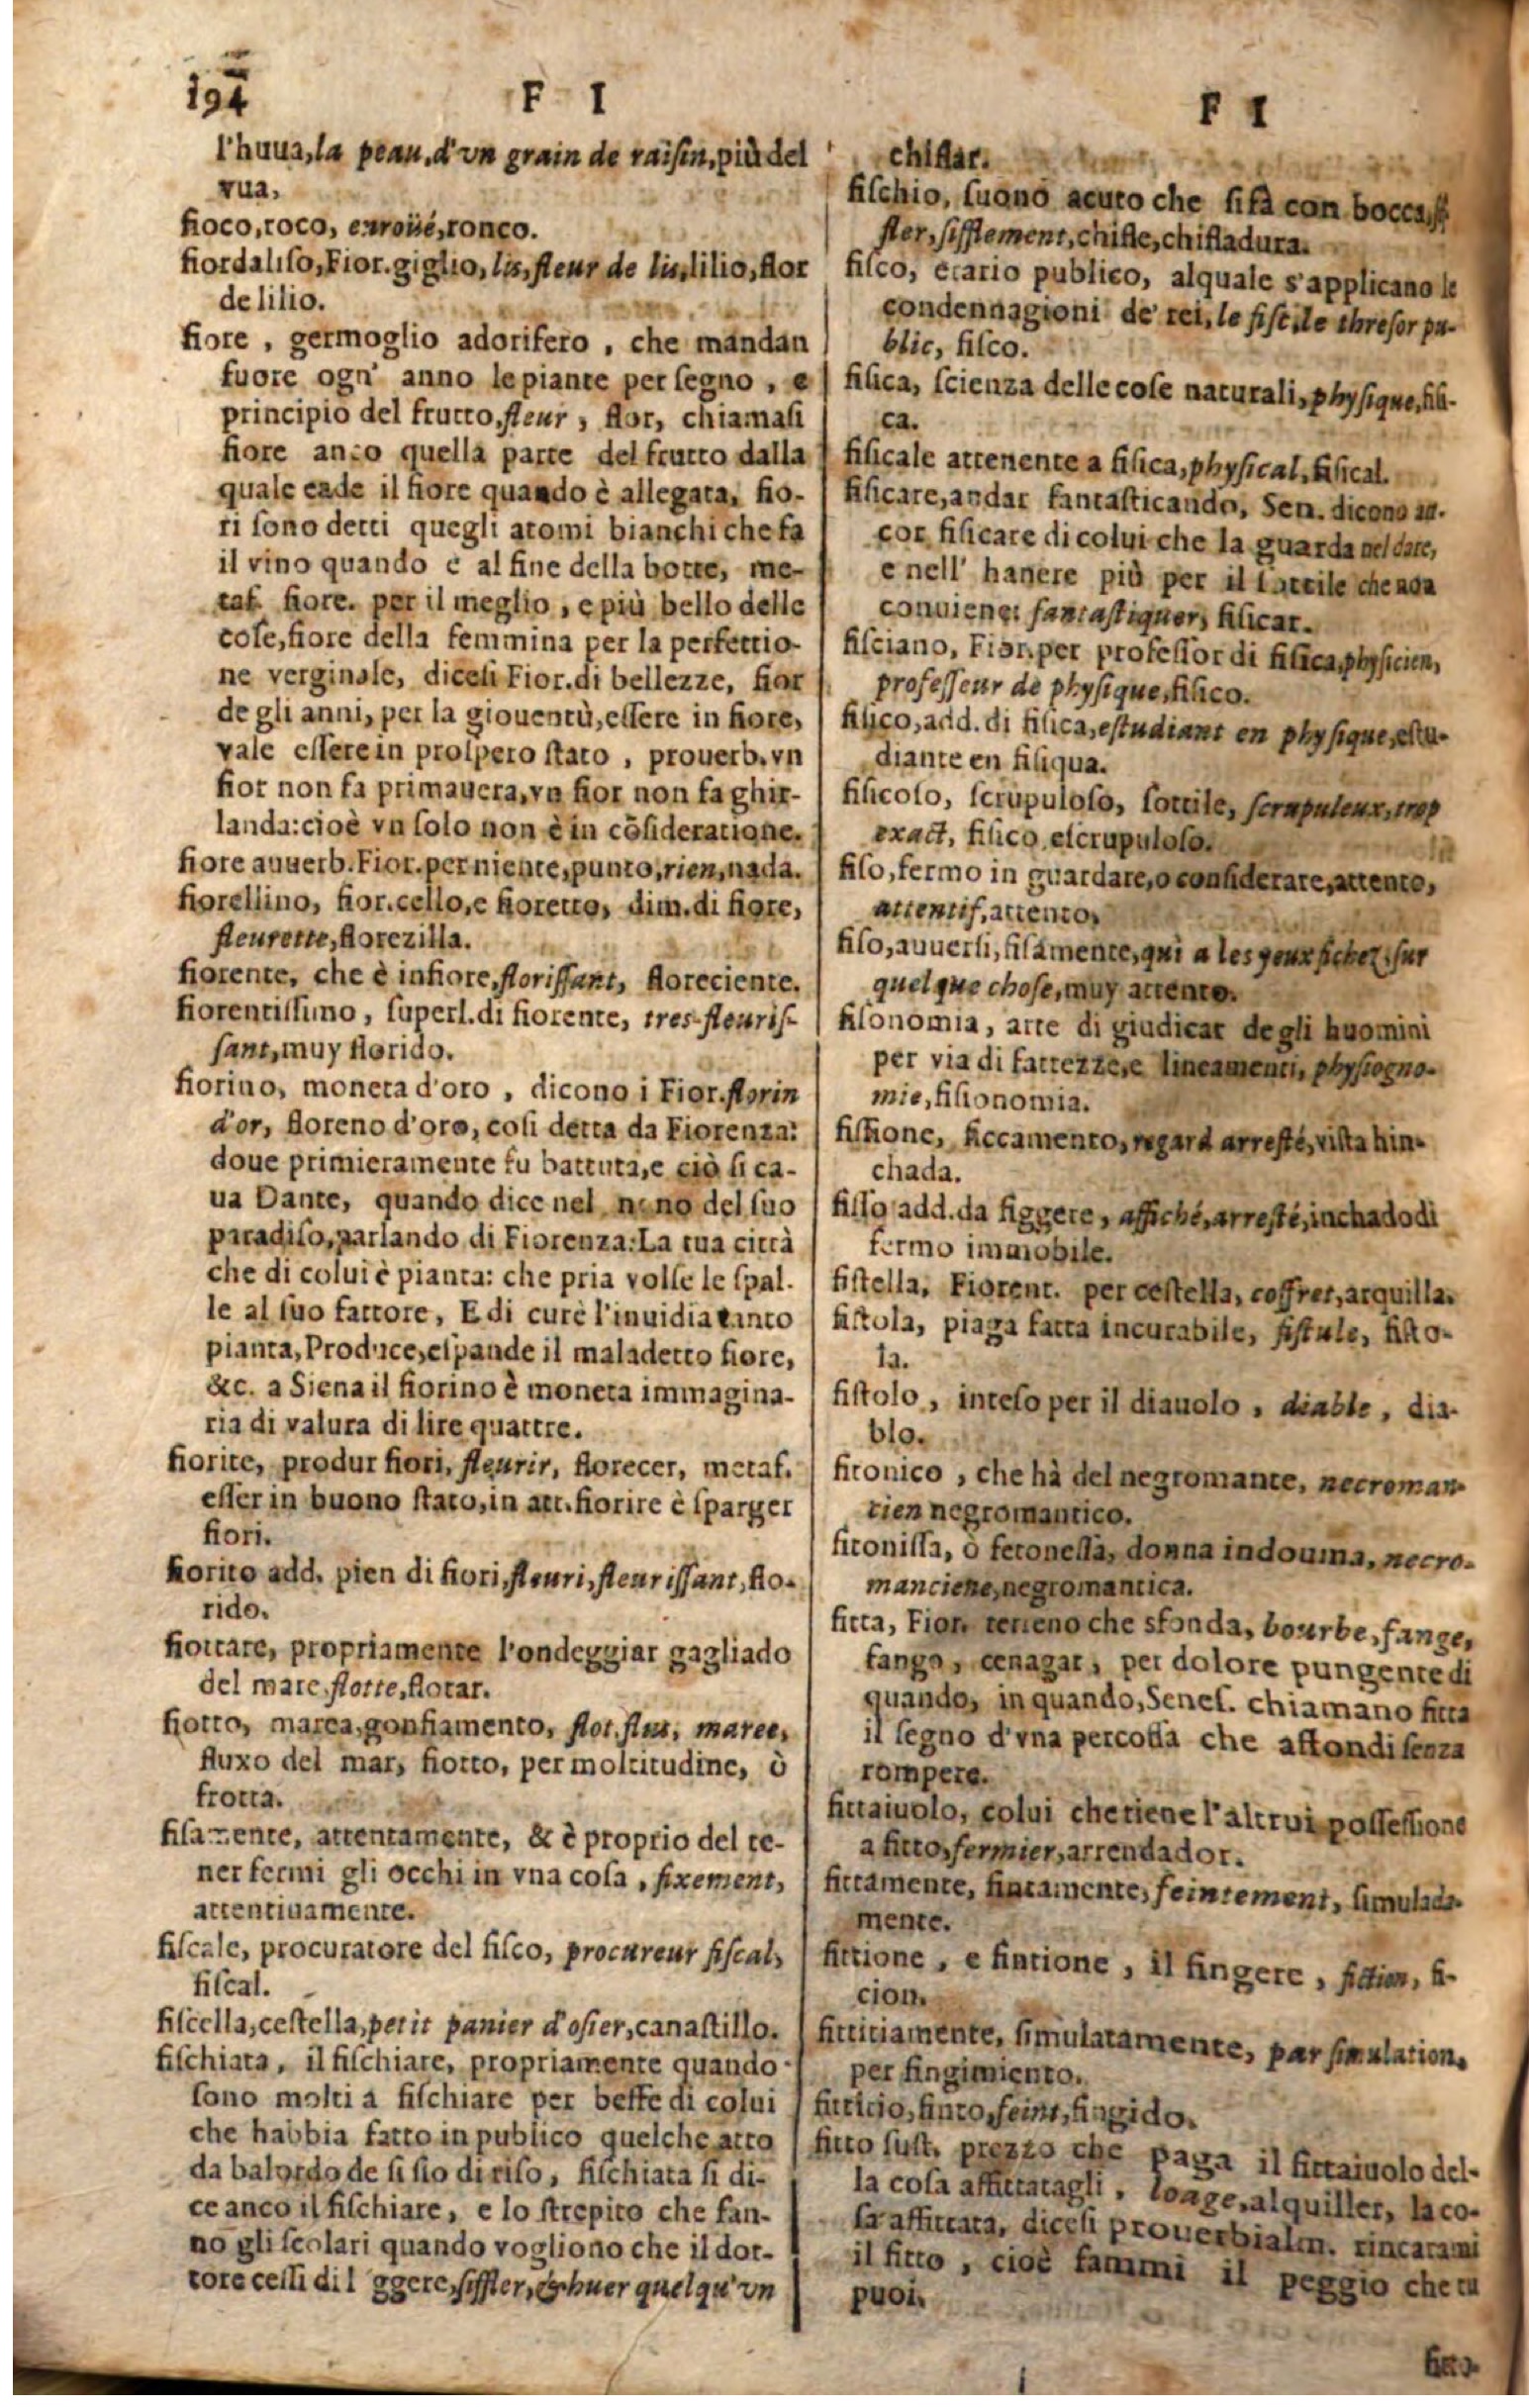 194
F I
l'huua, la peau, d'vn grain de raiſin, più del
vua,
fioco, roco, enroüé, ronco.
fiordaliſo, Fior. giglio, lis, fleur de lis, lilio, flor
de lilio.
fiore , germoglio adorifero , che mandan
fuore ogn' anno le piante per ſegno , e
principio del frutto, fleur , flor, chiamaſi
fiore anco quella parte del frutto dalla
quale cade il fiore quando è allegata, fio-
ri ſono detti quegli atomi bianchi che fa
il vino quando è al fine della botte, me-
taf. fiore. per il meglio , e più bello delle
coſe, fiore della femmina per la perfettio-
ne verginale, diceſi Fior. di bellezze, fior
de gli anni, per la giouentù, eſſere in fiore,
vale eſſere in proſpero ſtato , prouerb. vn
fior non fa primauera, vn fior non fa ghir-
landa: cioè vn ſolo non è in cõſideratione.
fiore auuerb. Fior. per niente, punto, rien, nada.
fiorellino, fior.cello, e fioretto, dim. di fiore,
fleurette, florezilla.
fiorente, che è infiore, floriſſant, floreciente.
fiorentiſſimo , ſuperl. di fiorente, tres-fleuriſ-
ſant, muy florido.
fiorino, moneta d'oro , dicono i Fior. florin
d'or, floreno d'oro, coſi detta da Fiorenza:
doue primieramente fu battuta, e ciò ſi ca-
ua Dante, quando dice nel nono del ſuo
paradiſo, parlando di Fiorenza: La tua città
che di colui è pianta: che pria volſe le ſpal.
le al ſuo fattore, E di cui è l'inuidia tanto
pianta, Produce, eſpande il maladetto fiore,
&c. a Siena il fiorino è moneta immagina-
ria di valura di lire quattre.
fiorire, produr fiori, fleurir, florecer, metaf.
eſſer in buono ſtato, in att. fiorire è ſparger
fiori.
fiorito add. pien di fiori, fleuri, fleuriſſant, flo-
rido.
fiottare, propriamente l'ondeggiar gagliado
del mare, flotte, flotar.
fiotto, marea, gonfiamento, flot. flus, maree,
fluxo del mar, fiotto, per moltitudine, ò
frotta.
fiſamente, attentamente, & è proprio del te-
ner fermi gli occhi in vna coſa , fixement,
attentiuamente.
fiſcale, procuratore del fiſco, procureur fiſcal,
fiſcal.
fiſcella, ceſtella, petit panier d'oſier, canaſtillo.
fiſchiata, il fiſchiare, propriamente quando
ſono molti a fiſchiare per beffe di colui
che habbia fatto in publico quelche atto
da balordo de ſi ſio di riſo, fiſchiata ſi di-
ce anco il fiſchiare, e lo ſtrepito che fan-
no gli ſcolari quando vogliono che il dot-
tore ceſſi di l ggere, ſiffler, & huer quelqu'vn
F I
chiflar.
fiſchio, ſuono acuto che ſi fà con bocca,
fler, ſifflement, chifle, chifladura.
fiſco, erario publico, alquale s'applicano le
condennagioni de' rei, le fiſc, le threſor pu-
blic, fiſco.
fiſica, ſcienza delle coſe naturali, phyſique, fiſi-
ca.
fiſicale attenente a fiſica, phyſical, fiſical.
fiſicare, andar fantaſticando, Sen. dicono an-
cor fiſicare di colui che la guarda nel dare,
e nell' hauere più per il ſottile che non
conuiene: fantaſtiquer, fiſicar.
fiſciano, Fior. per profeſſor di fiſica, phyſicien,
profeſſeur de phyſique, fiſico.
fiſico, add. di fiſica, eſtudiant en phyſique, eſtu-
diante en fiſiqua.
fiſicoſo, ſcrupuloſo, ſottile, ſcrupuleux, trop
exact, fiſico eſcrupuloſo.
fiſo, fermo in guardare, o conſiderare, attento,
attentif, attento,
fiſo, auuerſi, fiſamente, qui a les yeux fichez ſur
quelque choſe, muy attento.
fiſonomia, arte di giudicar de gli huomini
per via di fattezze, e lineamenti, phyſiogno-
mie, fiſionomia.
fiſſione, ficcamento, regard arreſté, viſta hin-
chada.
fiſſo add. da figgere, affiché, arreſté, inchado di
fermo immobile.
fiſtella, Fiorent. per ceſtella, coffret, arquilla.
fiſtola, piaga fatta incurabile, fiſtule, fiſto-
la.
fiſtolo , inteſo per il diauolo , diable , dia-
blo.
fitonico , che hà del negromante, necroman-
tien negromantico.
fitoniſſa, ò fetoneſſa, donna indouina, necro-
manciene, negromantica.
fitta, Fior. terreno che sfonda, bourbe, fange,
fango, cenagar, per dolore pungente di
quando, in quando, Seneſ. chiamano fitta
il ſegno d'vna percoſſa che affondi ſenza
rompere.
fittaiuolo, colui che tiene l'altrui poſſeſſione
a fitto, fermier, arrendador.
fittamente, fintamente, feintement, ſimulada-
mente.
fittione , e fintione , il fingere , fiction, fi-
cion.
fittitiamente, ſimulatamente, par ſimulation,
per fingimiento.
fitticio, finto, feint, fingido.
fitto ſuſt. prezzo che paga il fittaiuolo del-
la coſa affittatagli , loage, alquiller, la co-
ſa affittata, diceſi prouerbialm. rincarami
il fitto , cioè fammi il peggio che tu
puoi.
fitto-